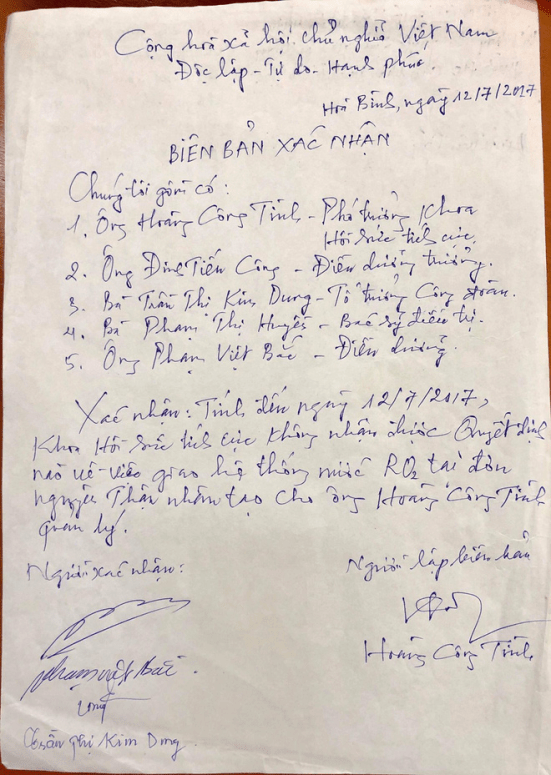 Cộng hoà xã hội chủ nghĩa Việt Nam
Độc lập - Tự do - Hạnh phúc
Hoà Bình, ngày 12/7/2017
BIÊN BẢN XÁC NHẬN
Chúng tôi gồm có:
1. Ông Hoàng Công Tình - Phó trưởng Khoa
Hồi sức tích cực.
2. Ông Đinh Tiến Công - Điều dưỡng trưởng.
3. Bà Trần Thị Kim Dung - Tổ trưởng Công đoàn.
4. Bà Phạm Thị Huyền - Bác sỹ điều trị.
5. Ông Phạm Việt Bắc - Điều dưỡng.
Xác nhận: Tính đến ngày 12/7/2017,
Khoa Hồi sức tích cực không nhận được Quyết định
nào về việc giao hệ thống nước RO2 tại đơn
nguyên Thận nhân tạo cho ông Hoàng Công Tình
quản lý.
Người xác nhận:
Người lập biên bản
Hoàng Công Tình
Phạm Việt Bắc
Công
Trần Thị Kim Dung